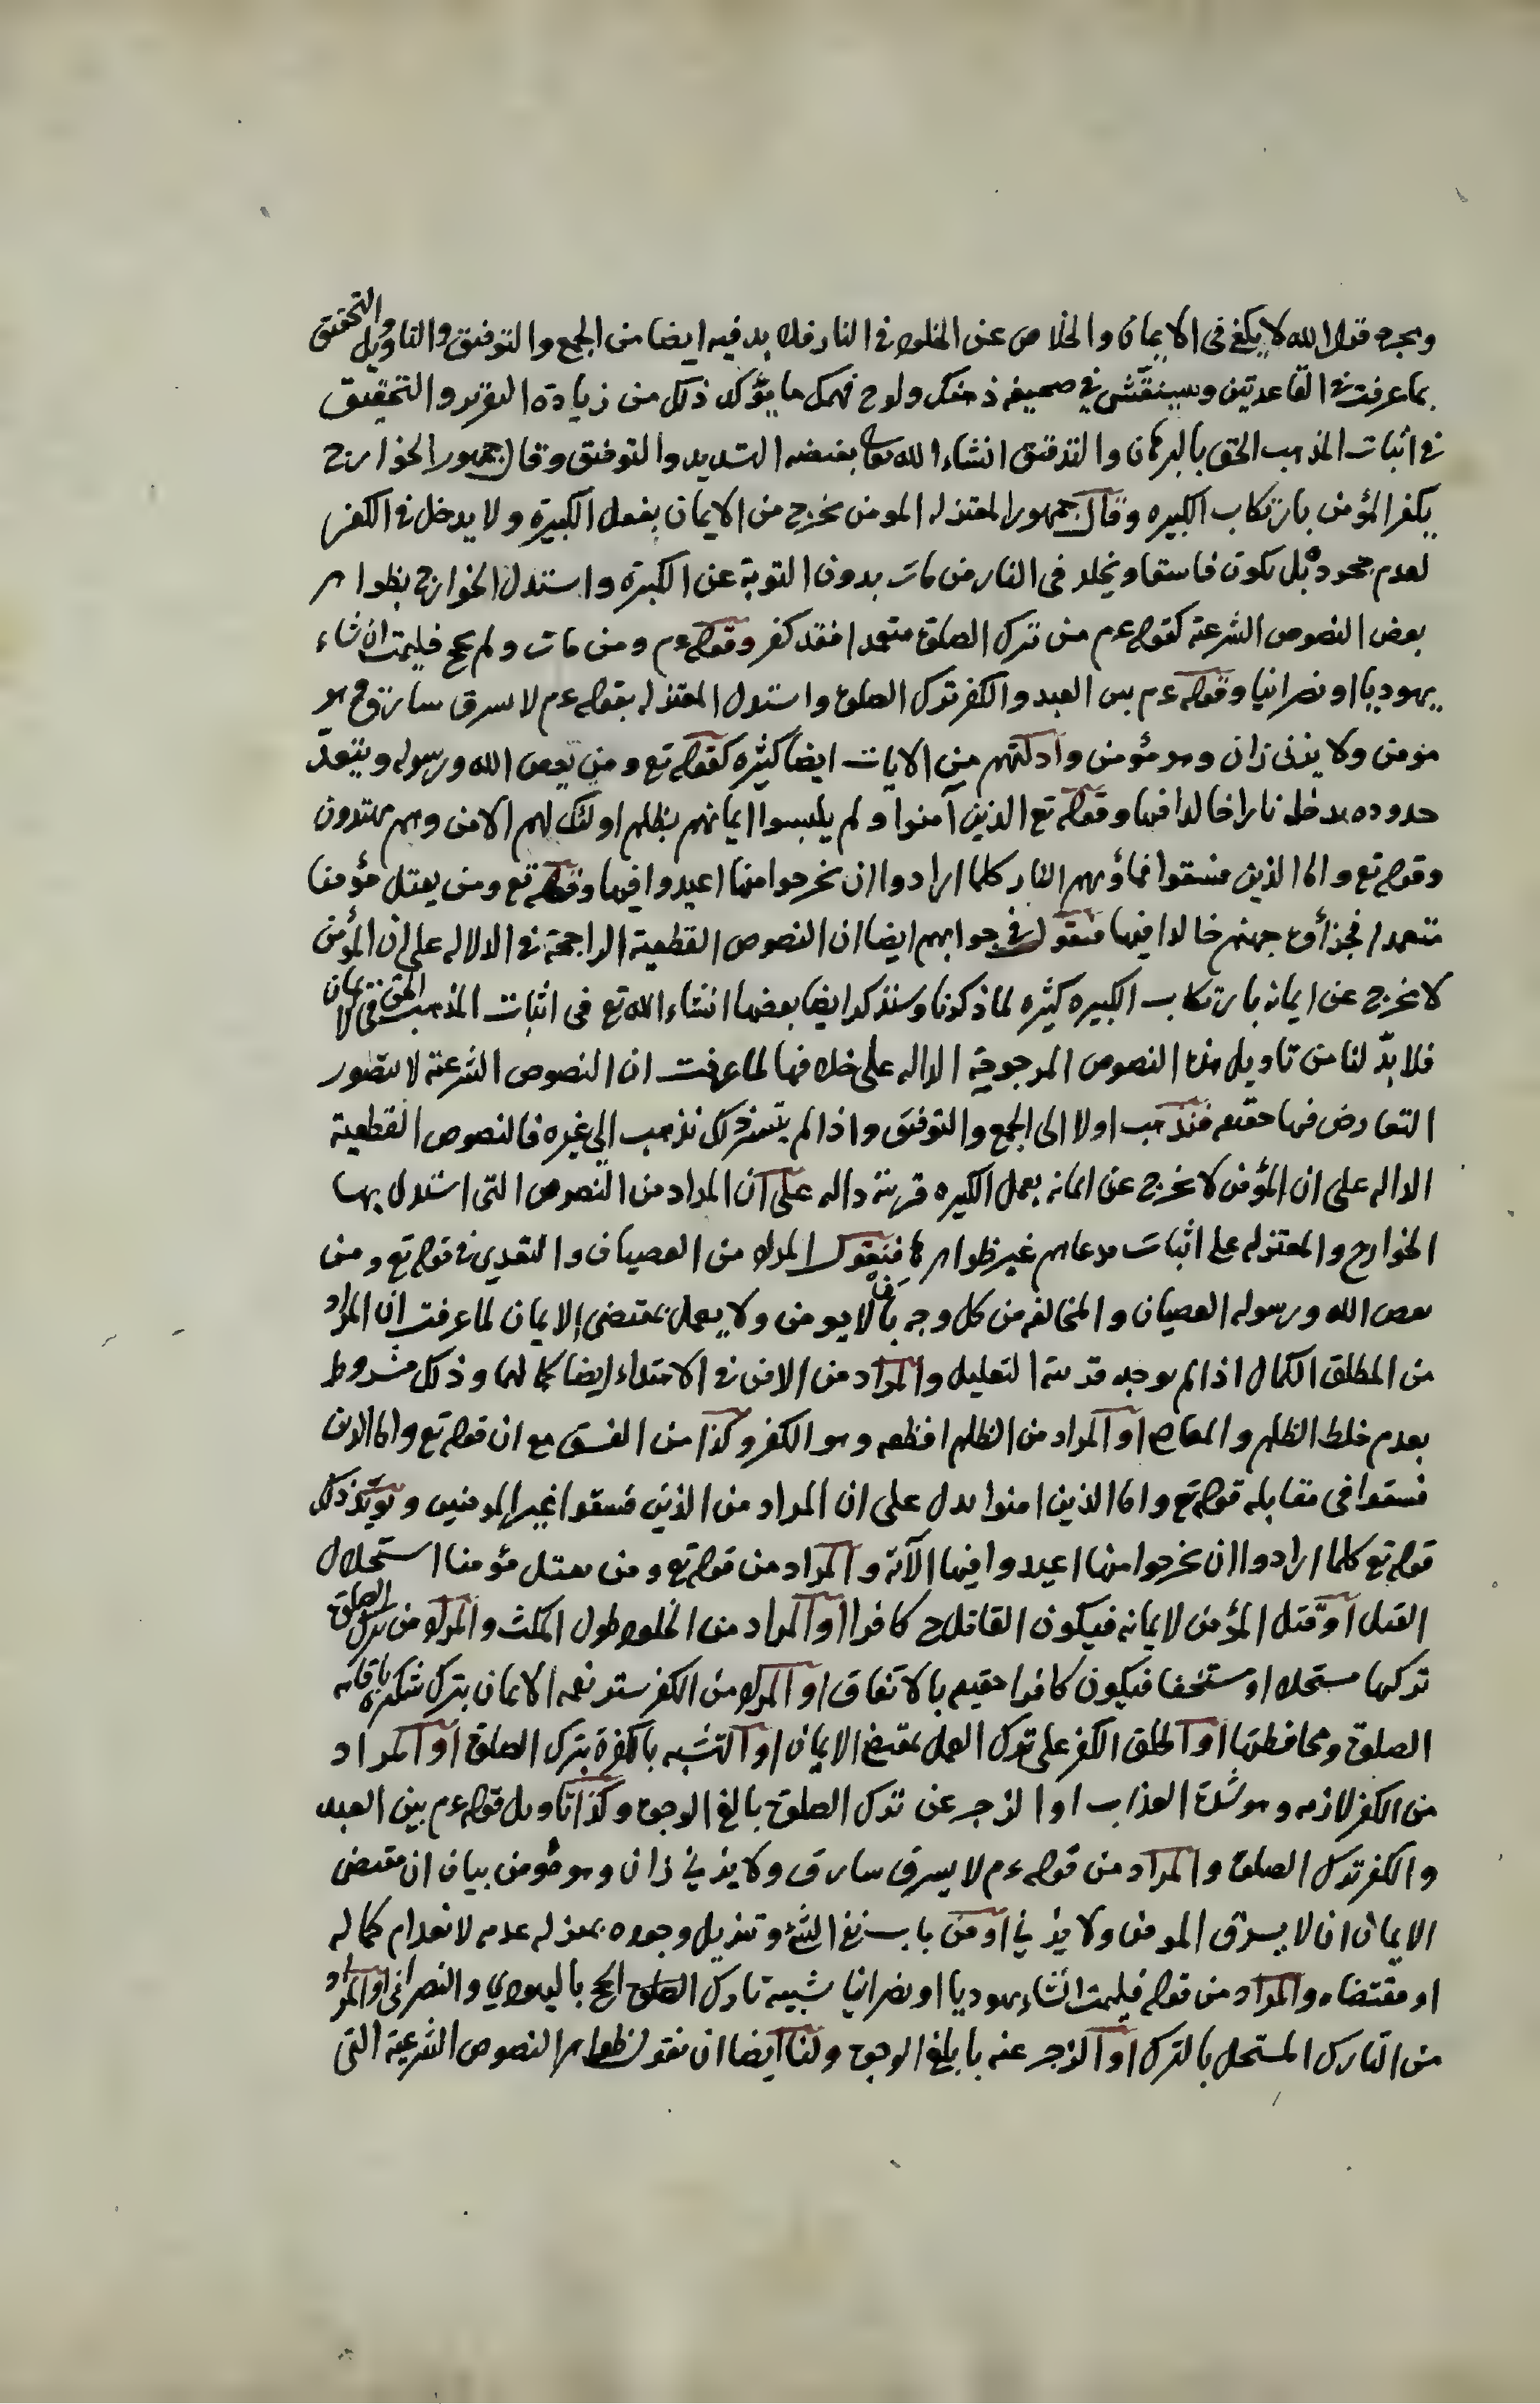 ومجرد قول الله لا يكفى فى الايمان والخلاص عن الخلود فى النار فلا بد فيه ايضا من الجمع والتوفيق والتاويل والتحقيق
بما عرفت فى القاعدتين وسينقش فى صحيفة ذهنك ولوح فهمك ما يؤكد ذلك من زيادة التقرير والتحقيق
فى اثبات المذهب الحق بالبرهان والتدقيق انشاء الله تعالى بفيضه التسديد والتوفيق وقال جمهور الخوارج
يكفر المؤمن بارتكاب الكبيره وقال جمهور المعتزله المومن يخرج من الايمان بفعل الكبيرة ولا يدخل فى الكفر
لعدم جحوده بل يكون فاسقا ويخلد فى النار من مات بدون التوبة عن الكبيرة واستدل الخوارج بظواهر
بعض النصوص الشرعية كقوله ءم من ترك الصلوة متعمدا فقد كفر وقوله ءم ومن مات ولم يحج فليمت ان شاء
يهوديا او نصرانيا وقوله ءم بين العبد والكفر ترك الصلوة واستدل المعتزله بقوله ءم لا يسرق سارق وهو
مومن ولا يزنى زان وهو مؤمن وادلتهم من الايات ايضا كثيره كقوله تع ومن يعص الله ورسوله ويتعد
حدوده يدخله نارا خالدا فيها وقوله تع الذين آمنوا ولم يلبسوا ايمانهم بظلم اولئك لهم الامن وهم مهتدون
وقوله تع واما الذين فسقوا فمأويهم النار كلما ارادوا ان يخرجوا منها اعيدوا فيها وقوله تع ومن يقتل مؤمنا
متعمدا فجزأوه جهنم خالدا فيها فنقول فى جوابهم ايضا ان النصوص القطعية الراجحة فى الدلاله على ان المؤمن
لا يخرج عن ايمانه بارتكاب الكبيره كثيره لما ذكرنا وسنذكر ايضا بعضها انشاء الله تع فى اثبات المذهب الحق فى الايمان
فلا بدّ لنا من تاويل هذه النصوص المرجوحة الداله على خلافها لما عرفت ان النصوص الشرعية لا يتصور
التعارض فيها حقيقه فنذهب اولا الى الجمع والتوفيق واذا لم يتيسر ذلك نذهب الى غيره فالنصوص القطعية
الداله على ان المؤمن لا يخرج عن ايمانه بعمل الكبيره قرينة داله على ان المراد من النصوص التى استدل بها
الخوارج والمعتزله على اثبات مدعاهم غير ظواهرها فنقول المراد من العصيان والتعدى فى قوله تع ومن
يعص الله ورسوله العصيان والمخالفه من كل وجه بان لا يومن ولا يعمل بمقتضى الايمان لما عرفت ان المراد
من المطلق الكمال اذا لم يوجد قرينة التعليل والمراد من الامن فى الاهتداء ايضا كمالها وذلك مشروط
بعدم خلط الظلم والمعاصى او المراد من الظلم افظعه وهو الكفر وكذا من الفسق مع ان قوله تع واما الذين
فسقوا فى مقابله قوله تع واما الذين امنوا يدل على ان المراد من الذين فسقوا غير المومنين ويؤيد ذلك
قوله تع كلما ارادوا ان يخرجوا منها اعيدوا فيها الآية والمراد من قوله تع ومن يقتل مؤمنا استحلال
القتل او قتل المؤمن لايمانه فيكون القاتل ح كافرا او المراد من الخلود طول المكث والمراد من ترك الصلوة
تركها مستحلا او مستخفا فيكون كافرا حقيقه بالاتفاق او المراد من الكفر ستر نعمه الايمان بترك شكره باقامه
الصلوة ومحافظتها او اطلق الكفر على ترك العمل بمقتضى الايمان او التشبه بالكفرة بترك الصلوة او المراد
من الكفر لازمه وهو شدة العذاب او الزجر عن ترك الصلوة بالغ الوجوه وكذا تاويل قوله ءم بين العبد
والكفر ترك الصلوة والمراد من قوله ءم لا يسرق سارق ولا يزنى زان وهو مؤمن بيان ان مقتضى
الايمان ان لا يسرق المومن ولا يزنى او من باب نفى الشئ وتنزيل وجوده بمنزله عدمه لانعدام كماله
او مقتضاه والمراد من قوله فليمت انشاء يهوديا او نصرانيا شبيه تارك الحج باليهودى والنصرانى او المراد
من التارك المستحل بالترك او الزجر عنه بابلغ الوجوه ولنا ايضا ان نقول ظواهر النصوص الشرعية التى